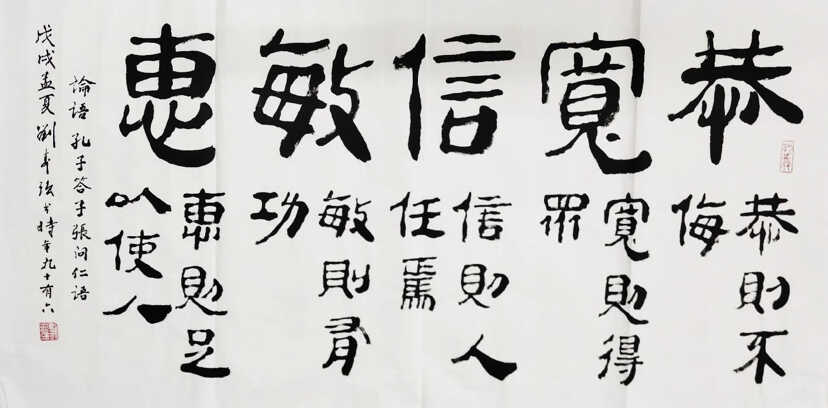 恭寬信敏惠
恭則不
侮
寬則得
眾
信則人
任焉
敏則有
功
惠則足
以使人
論語孔子答子張問仁語
戊戌孟夏劉书時年九十有六